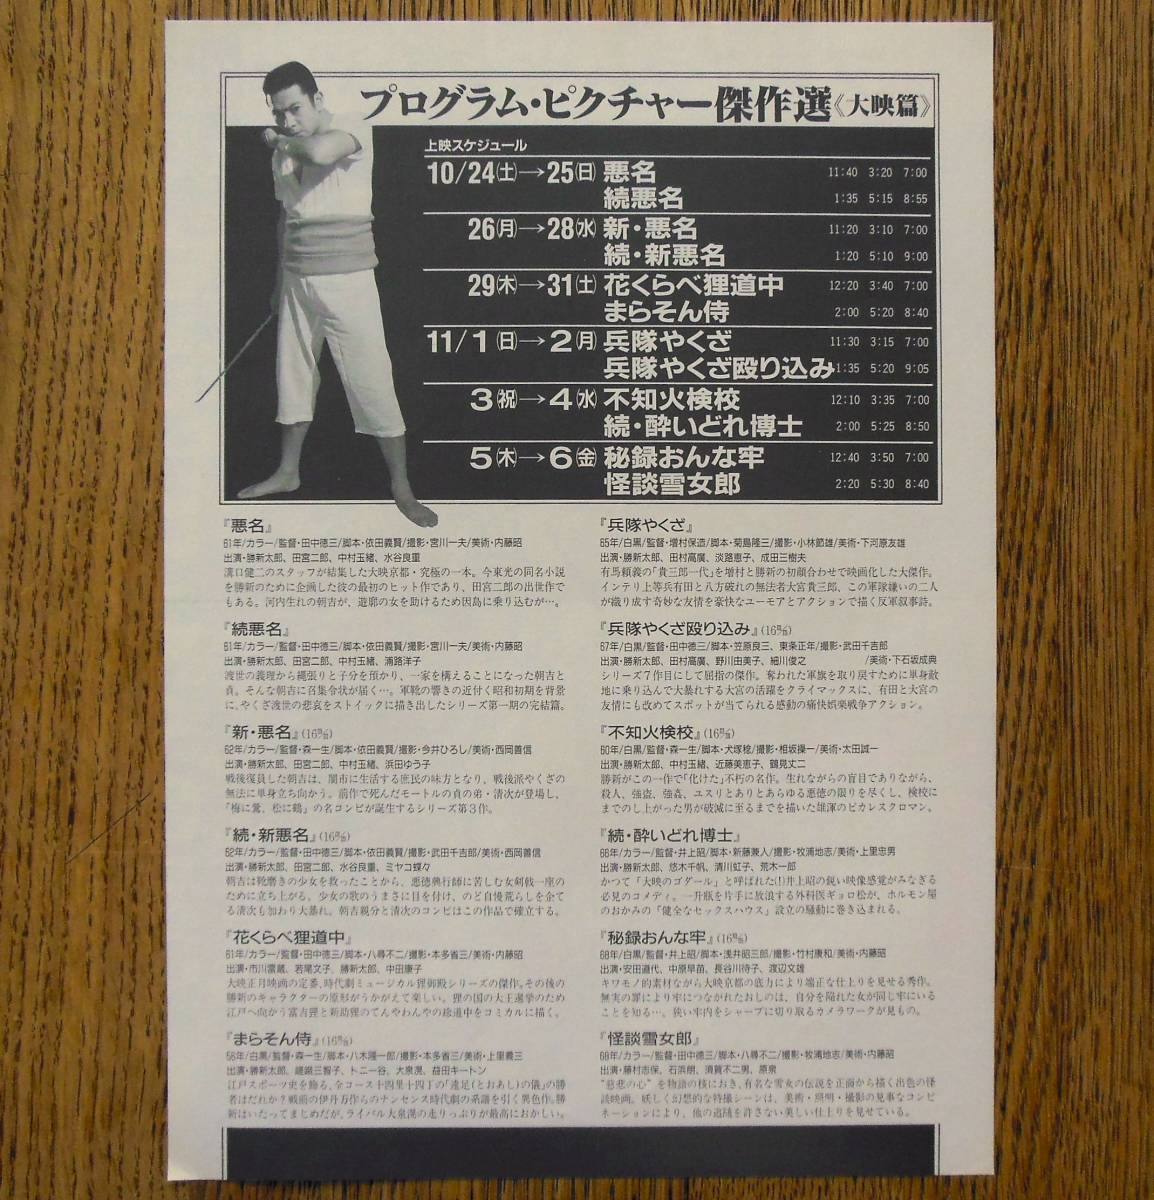 プログラム・ピクチャー傑作選《大映篇》
上映スケジュール
10/24(土)→25(日) 悪名 11:40 3:20 7:00
続悪名 1:35 5:15 8:55
26(月)→28(水) 新・悪名 11:20 3:10 7:00
続・新悪名 1:20 5:10 9:00
29(木)→31(土) 花くらべ狸道中 12:20 3:40 7:00
まらそん侍 2:00 5:20 8:40
11/1(日)→2(月) 兵隊やくざ 11:30 3:15 7:00
兵隊やくざ殴り込み 1:35 5:20 9:05
3(祝)→4(水) 不知火検校 12:10 3:35 7:00
続・酔いどれ博士 2:00 5:25 8:50
5(木)→6(金) 秘録おんな牢 12:40 3:50 7:00
怪談雪女郎 2:20 5:30 8:40
『悪名』
61年/カラー/監督・田中徳三/脚本・依田義賢/撮影・宮川一夫/美術・内藤昭
出演・勝新太郎、田宮二郎、中村玉緒、水谷良重
溝口健二のスタッフが結集した大映京都・究極の一本。今東光の同名小説
を勝新のために企画した彼の最初のヒット作であり、田宮二郎の出世作で
もある。河内生れの朝吉が、遊廓の女を助けるため因島に乗り込むが…。
『続悪名』
61年/カラー/監督・田中徳三/脚本・依田義賢/撮影・宮川一夫/美術・内藤昭
出演・勝新太郎、田宮二郎、中村玉緒、浦路洋子
渡世の義理から縄張りと子分を預かり、一家を構えることになった朝吉と
貞。そんな朝吉に召集令状が届く…。軍靴の響きの近付く昭和初期を背景
に、やくざ渡世の悲哀をストイックに描き出したシリーズ第一期の完結篇。
『新・悪名』(16㍉)
62年/カラー/監督・森一生/脚本・依田義賢/撮影・今井ひろし/美術・西岡善信
出演・勝新太郎、田宮二郎、中村玉緒、浜田ゆう子
戦後復員した朝吉は、闇市に生活する庶民の味方となり、戦後派やくざの
無法に単身立ち向かう。前作で死んだモートルの貞の弟・清次が登場し、
「梅に鶯、松に鶴」の名コンビが誕生するシリーズ第3作。
『続・新悪名』(16㍉)
62年/カラー/監督・田中徳三/脚本・依田義賢/撮影・武田千吉郎/美術・西岡善信
出演・勝新太郎、田宮二郎、水谷良重、ミヤコ蝶々
朝吉は靴磨きの少女を救ったことから、悪徳興行師に苦しむ女剣戟一座の
ために立ち上がる。少女の歌のうまさに目を付け、のど自慢荒らしを企て
る清次も加わり大暴れ。朝吉親分と清次のコンビはこの作品で確立する。
『花くらべ狸道中』
61年/カラー/監督・田中徳三/脚本・八尋不二/撮影・本多省三/美術・内藤昭
出演・市川雷蔵、若尾文子、勝新太郎、中田康子
大映正月映画の定番、時代劇ミュージカル狸御殿シリーズの傑作。その後の
勝新のキャラクターの原形がうかがえて楽しい。狸の国の大王選挙のため
江戸へ向かう富吉狸と新助狸のてんやわんやの珍道中をコミカルに描く。
『まらそん侍』(16㍉)
56年/白黒/監督・森一生/脚本・八木隆一郎/撮影・本多省三/美術・上里義三
出演・勝新太郎、嵯峨三智子、トニー谷、大泉滉、益田キートン
江戸スポーツ史を飾る、全コース十四里十四丁の「遠足(とおあし)の儀」の勝
者はだれか?戦前の伊丹万作らのナンセンス時代劇の系譜を引く異色作。勝
新はいたってまじめだが、ライバル大泉滉の走りっぷりが最高におかしい。
『兵隊やくざ』
65年/白黒/監督・増村保造/脚本・菊島隆三/撮影・小林節雄/美術・下河原友雄
出演・勝新太郎、田村高廣、淡路恵子、成田三樹夫
有馬頼義の「貴三郎一代」を増村と勝新の初顔合わせで映画化した大傑作。
インテリ上等兵有田と八方破れの無法者大宮貴三郎、この軍隊嫌いの二人
が織り成す奇妙な友情を豪快なユーモアとアクションで描く反軍叙事詩。
『兵隊やくざ殴り込み』(16㍉)
67年/白黒/監督・田中徳三/脚本・笠原良三、東条正年/撮影・武田千吉郎
出演・勝新太郎、田村高廣、野川由美子、細川俊之 /美術・下石坂成典
シリーズ7作目にして屈指の傑作。奪われた軍旗を取り戻すために単身敵
地に乗り込んで大暴れする大宮の活躍をクライマックスに、有田と大宮の
友情にも改めてスポットが当てられる感動の痛快娯楽戦争アクション。
『不知火検校』(16㍉)
60年/白黒/監督・森一生/脚本・犬塚稔/撮影・相坂操一/美術・太田誠一
出演・勝新太郎、中村玉緒、近藤美恵子、鶴見丈二
勝新がこの一作で「化けた」不朽の名作。生れながらの盲目でありながら、
殺人、強盗、強姦、ユスリとありとあらゆる悪徳の限りを尽くし、検校に
までのし上がった男が破滅に至るまでを描いた雄渾のピカレスクロマン。
『続・酔いどれ博士』
66年/カラー/監督・井上昭/脚本・新藤兼人/撮影・牧浦地志/美術・上里忠男
出演・勝新太郎、悠木千帆、清川虹子、荒木一郎
かつて「大映のゴダール」と呼ばれた(!)井上昭の鋭い映像感覚がみなぎる
必見のコメディ。一升瓶を片手に放浪する外科医ギョロ松が、ホルモン屋
のおかみの「健全なセックスハウス」設立の騒動に巻き込まれる。
『秘録おんな牢』(16㍉)
68年/白黒/監督・井上昭/脚本・浅井昭三郎/撮影・竹村康和/美術・内藤昭
出演・安田道代、中原早苗、長谷川待子、渡辺文雄
キワモノ的素材ながら大映京都の底力により端正な仕上りを見せる秀作。
無実の罪により牢につながれたおしのは、自分を陥れた女が同じ牢にいる
ことを知る…。狭い牢内をシャープに切り取るカメラワークが見もの。
『怪談雪女郎』
68年/カラー/監督・田中徳三/脚本・八尋不二/撮影・牧浦地志/美術・内藤昭
出演・藤村志保、石浜朗、須賀不二男、原泉
“慈悲の心”を物語の核におき、有名な雪女の伝説を正面から描く出色の怪
談映画。妖しく幻想的な特撮シーンは、美術・照明・撮影の見事なコンビ
ネーションにより、他の追随を許さない美しい仕上りを見せている。